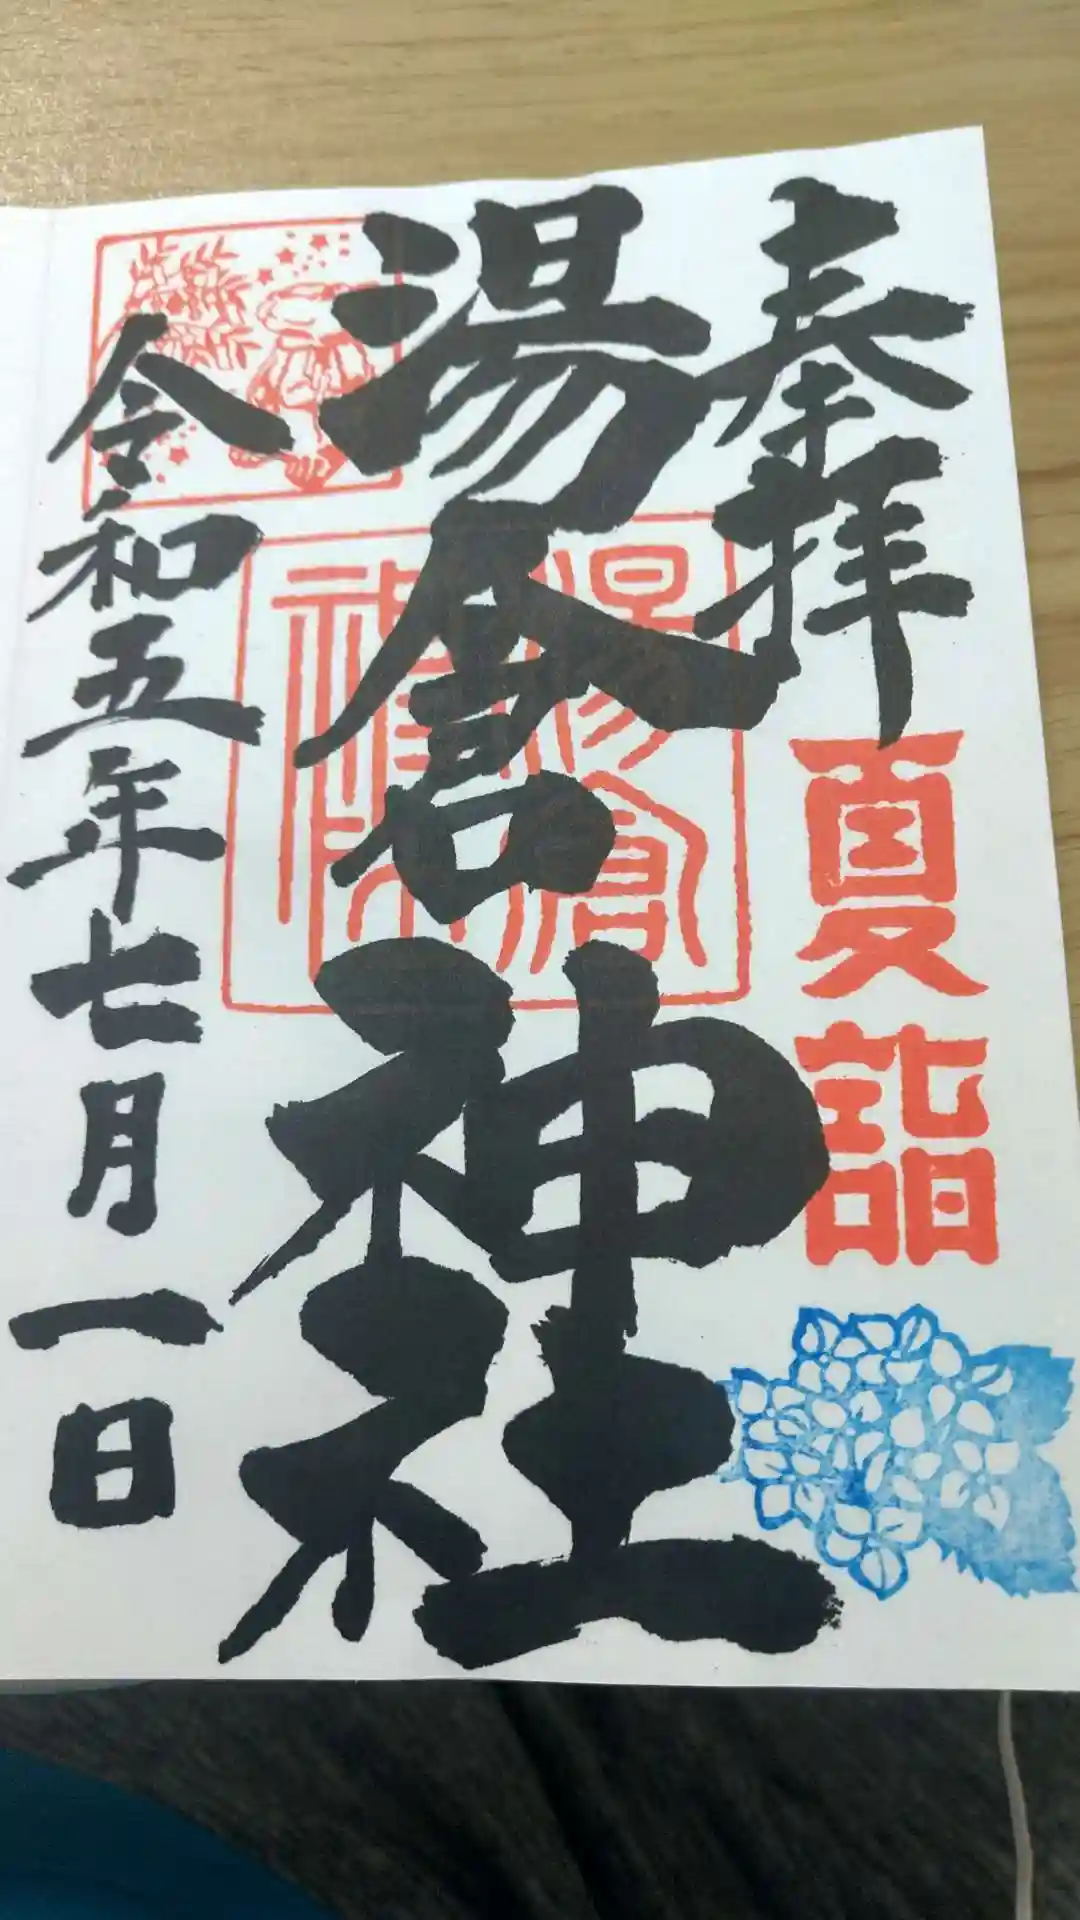 奉拝
夏詣
湯倉神社
湯倉
神社
令和五年七月一日